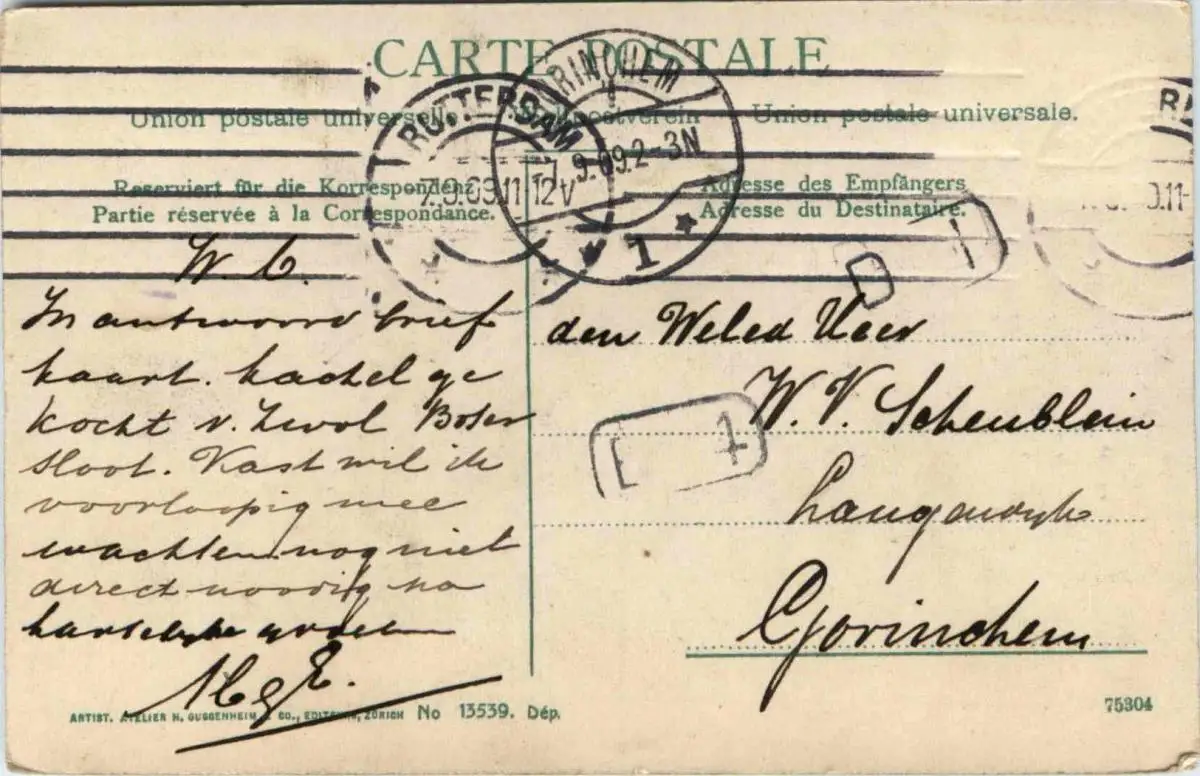 CARTE POSTALE
Union postale universelle. Weltpostverein Union postale universale.
Reserviert für die Korrespondenz
Partie réservée à la Correspondance.
Adresse des Empfängers
Adresse du Destinataire.
ROTTERDAM
7.9.09.11-12V
GORINCHEM
7.9.09.2-3N
1
W. C.
In antwoord brief
kaart. kachel ge
kocht v. Zwol Boter
sloot. Kast wil ik
voorloopig mee
wachten nog niet
direct noodig na
hartelyke groeten
den Weled Heer
W. V. Scheublein
Langendyk
Gorinchem
1
7
ARTIST. ATELIER H. GUGGENHEIM & CO., EDITEURS, ZÜRICH No 13539. Dép.
75304